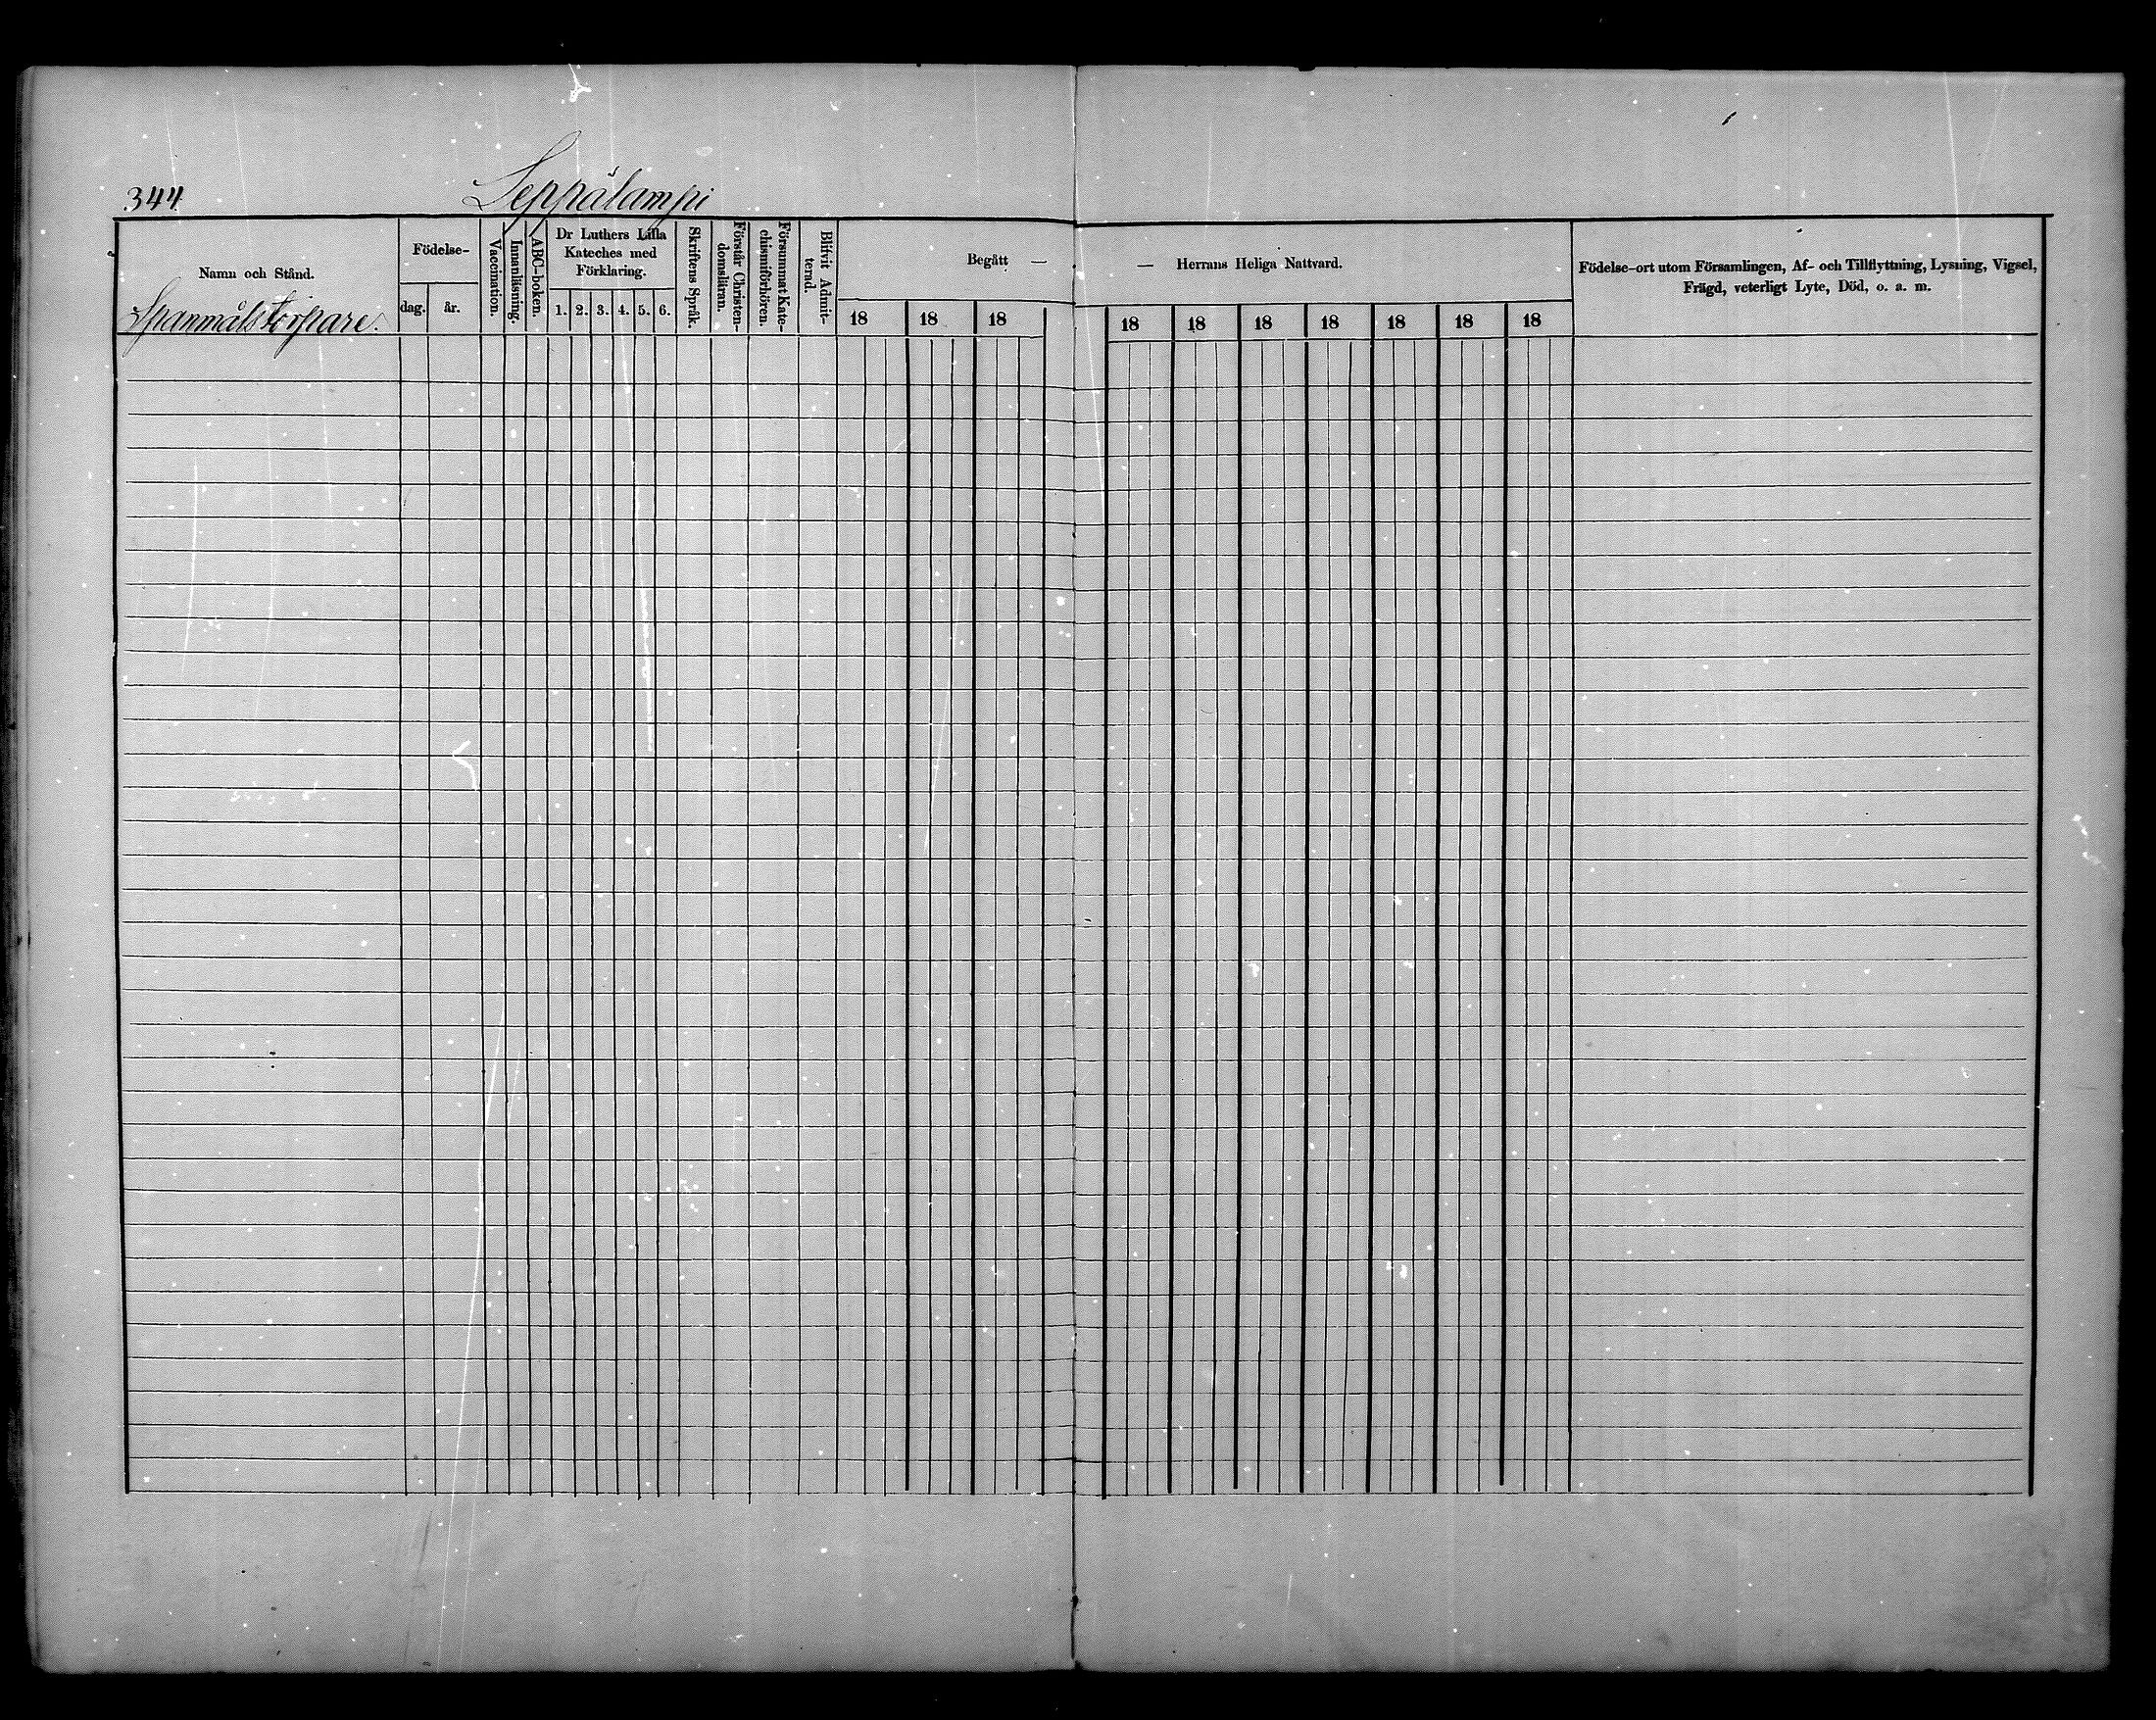 344
Seppälampi
Namn och Stånd.
Spanmålstorpare.
Födelse-
dag.
år.
Vaccination.
Innanläsning.
ABC-boken.
Dr Luthers Lilla
Kateches med
Förklaring.
1. 2. 3. 4. 5. 6.
Skriftens Språk.
Förstår Christen-
domsläran.
Försummat Kate-
chismiförhören.
Blifvit Admit-
terad.
Begått —
18 18 18
— Herrans Heliga Nattvard.
18 18 18 18 18 18 18
Födelse-ort utom Församlingen, Af- och Tillflyttning, Lysning, Vigsel,
Frägd, veterligt Lyte, Död, o. a. m.